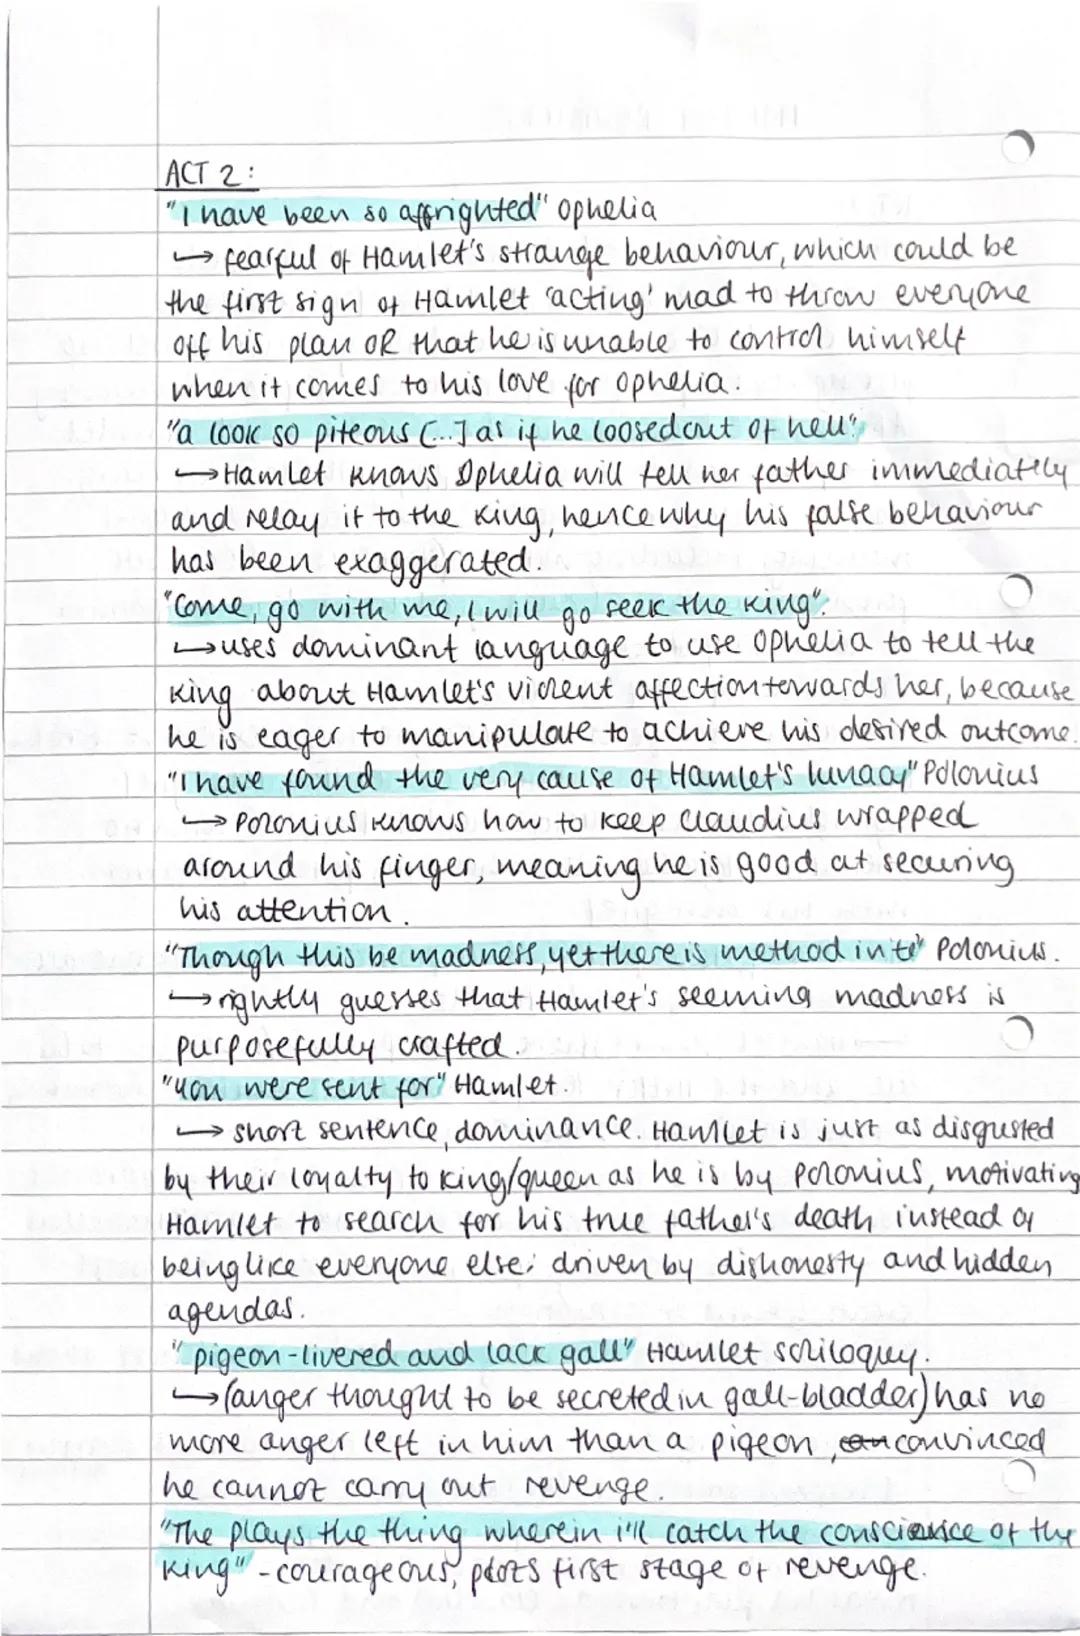 ACT 2:
"I have been so affrighted" Ophelia
→ fearful of Hamlet's strange behaviour, which could be
the first sign of Hamlet 'acting' mad to throw everyone
off his plan OR that he is unable to control himself
when it comes to his love for Ophelia.
"a look so piteous [...] as if he loosed out of hell".
→ Hamlet knows Ophelia will tell her father immediately
and relay it to the King, hence why his false behaviour
has been exaggerated.
"Come, go with me, I will go seek the King".
→ uses dominant language to use Ophelia to tell the
King about Hamlet's violent affection towards her, because
he is eager to manipulate to achieve his desired outcome.
"I have found the very cause of Hamlet's lunacy" Polonius
→ Polonius knows how to keep Claudius wrapped
around his finger, meaning he is good at securing
his attention.
"Though this be madness, yet there is method in't" Polonius.
→ rightly guesses that Hamlet's seeming madness is
purposefully crafted.
"You were sent for" Hamlet.
→ short sentence, dominance. Hamlet is just as disgusted
by their loyalty to King/queen as he is by Polonius, motivating
Hamlet to search for his true father's death instead of
being like everyone else: driven by dishonesty and hidden
agendas.
"pigeon-livered and lack gall" Hamlet soliloquy.
→ (anger thought to be secreted in gall-bladder) has no
more anger left in him than a pigeon, convinced
he cannot carry out revenge.
"The plays the thing wherein i'll catch the conscience of the
King" - courageous, plots first stage of revenge.